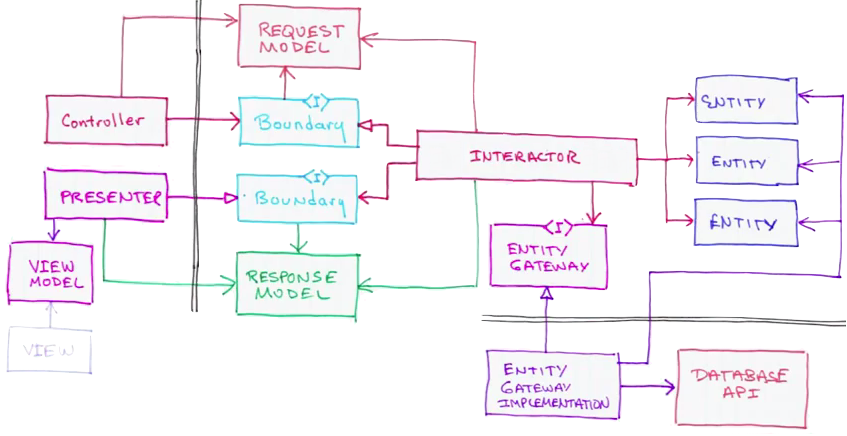 REQUEST
MODEL
<I>
Controller
Boundary
ENTITY
INTERACTOR
ENTITY
<I>
PRESENTER
Boundary
ENTITY
<I>
ENTITY
GATEWAY
VIEW
MODEL
RESPONSE
MODEL
VIEW
ENTITY
GATEWAY
IMPLEMENTATION
DATABASE
API